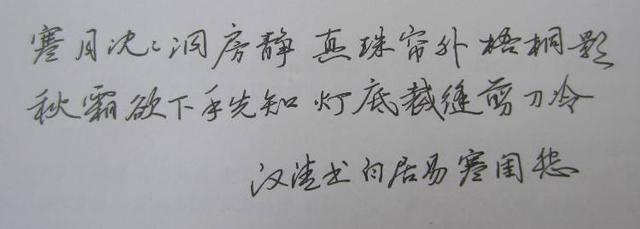 寒月沈沈洞房静 真珠帘外梧桐影
秋霜欲下手先知 灯底裁缝剪刀冷
汉清书白居易寒闺怨